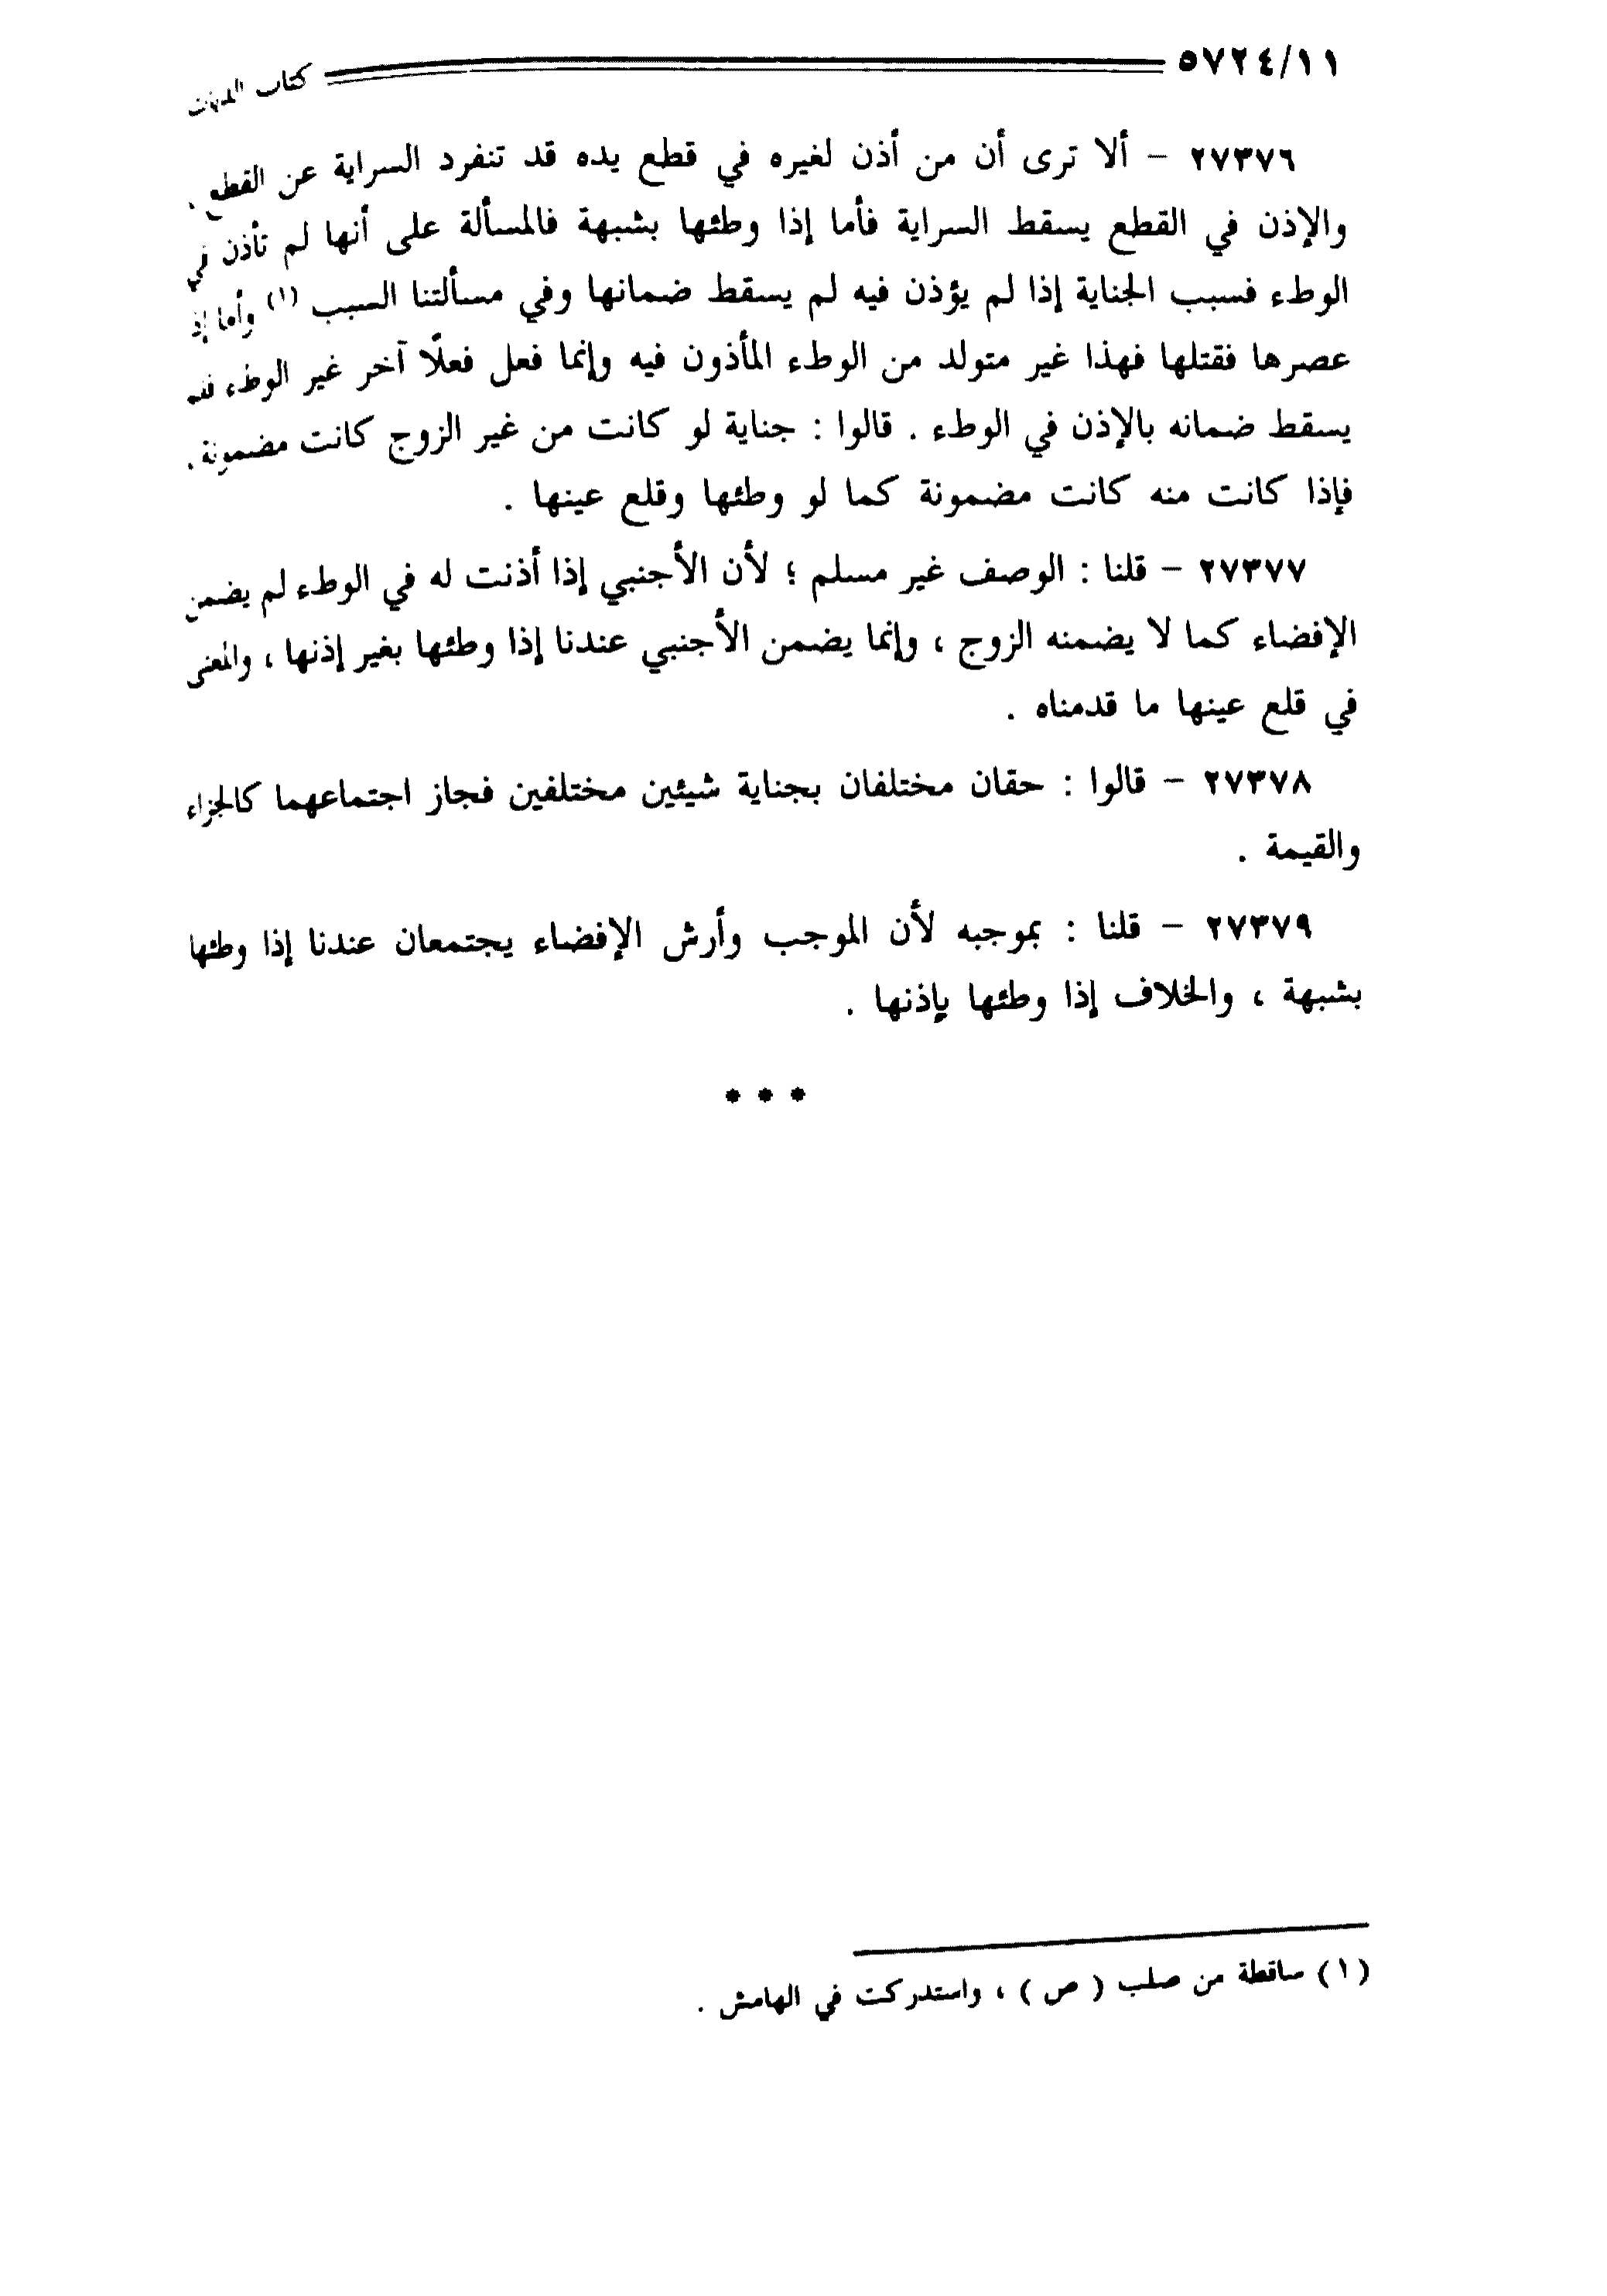 ٥٧٢٤/١١ كتاب الديات
٢٧٣٧٦ - ألا ترى أن من أذن لغيره في قطع يده قد تنفرد السراية عن القطع ،
والإذن في القطع يسقط السراية فأما إذا وطئها بشبهة فالمسألة على أنها لم تأذن في
الوطء فسبب الجناية إذا لم يؤذن فيه لم يسقط ضمانها وفي مسألتنا السبب (١) وأما إذ
عصرها فقتلها فهذا غير متولد من الوطء المأذون فيه وإنما فعل فعلًا آخر غير الوطء فلم
يسقط ضمانه بالإذن في الوطء . قالوا : جناية لو كانت من غير الزوج كانت مضمونة ،
فإذا كانت منه كانت مضمونة كما لو وطئها وقلع عينها .
٢٧٣٧٧ - قلنا : الوصف غير مسلم ؛ لأن الأجنبي إذا أذنت له في الوطء لم يضمن
الإفضاء كما لا يضمنه الزوج ، وإنما يضمن الأجنبي عندنا إذا وطئها بغير إذنها ، والمعنى
في قلع عينها ما قدمناه .
٢٧٣٧٨ - قالوا : حقان مختلفان بجناية شيئين مختلفين فجاز اجتماعهما كالجزاء
والقيمة .
٢٧٣٧٩ - قلنا : بموجبه لأن الموجب وأرش الإفضاء يجتمعان عندنا إذا وطئها
بشبهة ، والخلاف إذا وطئها بإذنها .
* * *
(١) ساقطة من صلب ( ص ) ، واستدركت في الهامش .